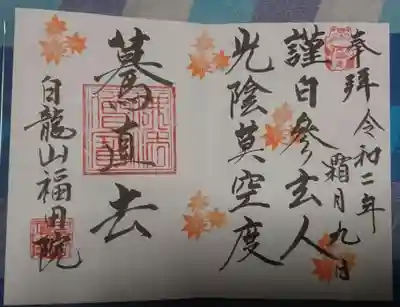 奉拝
令和二年
霜月九日
謹白参玄人
光陰莫空度
驀直去
白龍山福田院